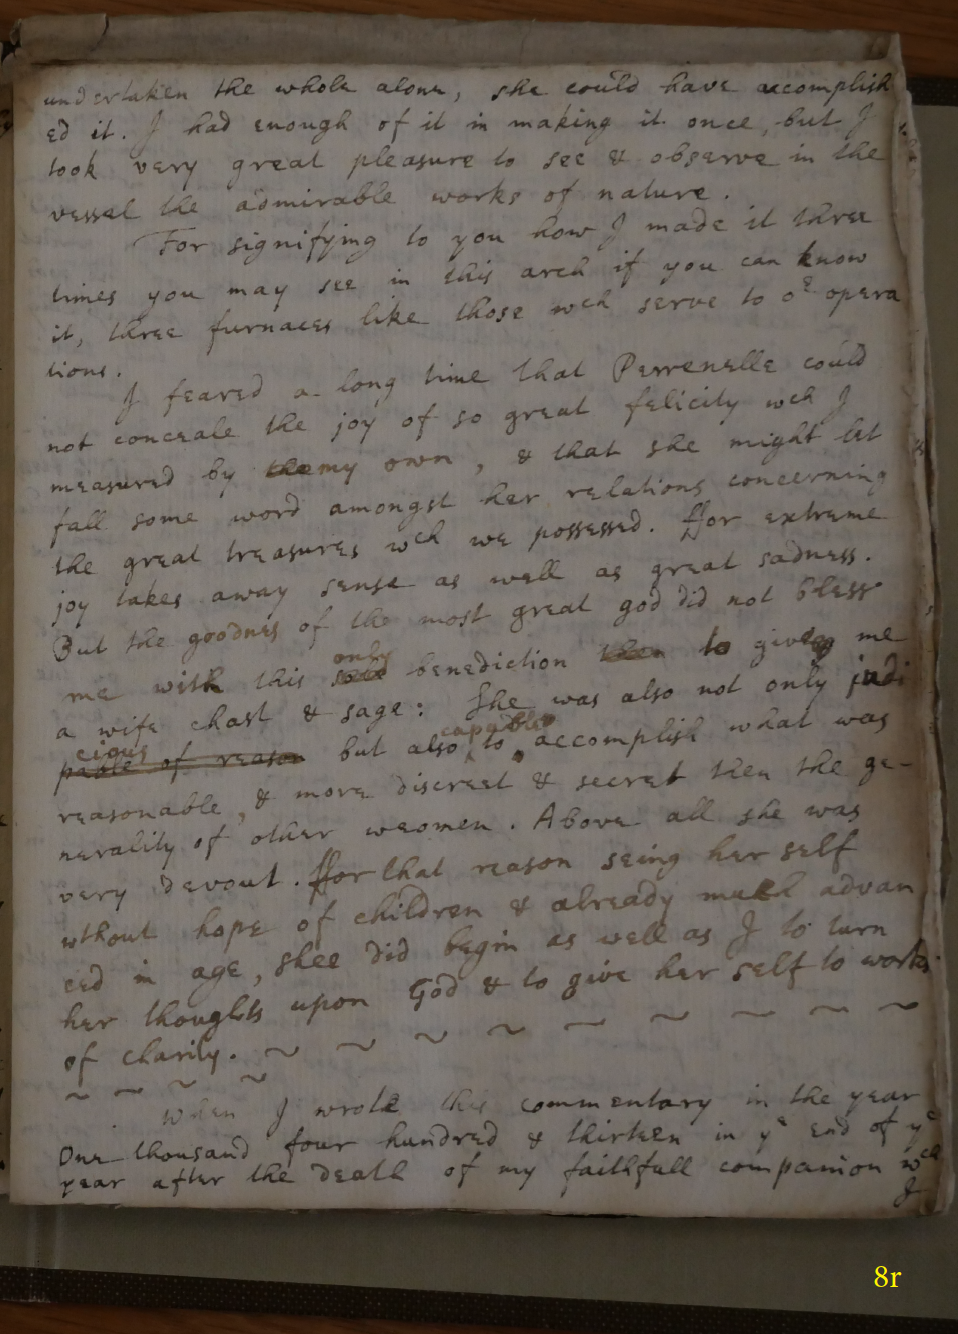 undertaken the whole alone, she could have accomplish
ed it. I had enough of it in making it once, but I
took very great pleasure to see & observe in the
vessel the admirable works of nature.
For signifying to you how I made it three
times you may see in this arch if you can know
it, three furnaces like those wch serve to or opera
tions.
I feared a long time that Perrenelle could
not conceale the joy of so great felicity wch I
measured by the my own, & that she might let
fall some word amongst her relations concerning
the great treasures wch we possessed. ffor extreme
joy takes away sense as well as great sadness.
But the goodnes of the most great god did not bless
only
me with this benediction then to giveing me
a wife chast & sage: She was also not only judi
cious capable
pable of reason but also, to accomplish what was
reasonable, & more discreet & secret then the ge-
nerality of other weomen. Above all she was
very devout. ffor that reason seing her self
wthout hope of children & already much advan
ced in age, shee did begin as well as I to turn
her thoughts upon God & to give her self to works
of charity. ~ ~ ~ ~ ~ ~ ~ ~ ~
~ ~ ~ ~
When I wrote this commentary in the year
One thousand four hundred & thirteen in ye end of ye
year after the death of my faithfull companion wch
I
8r